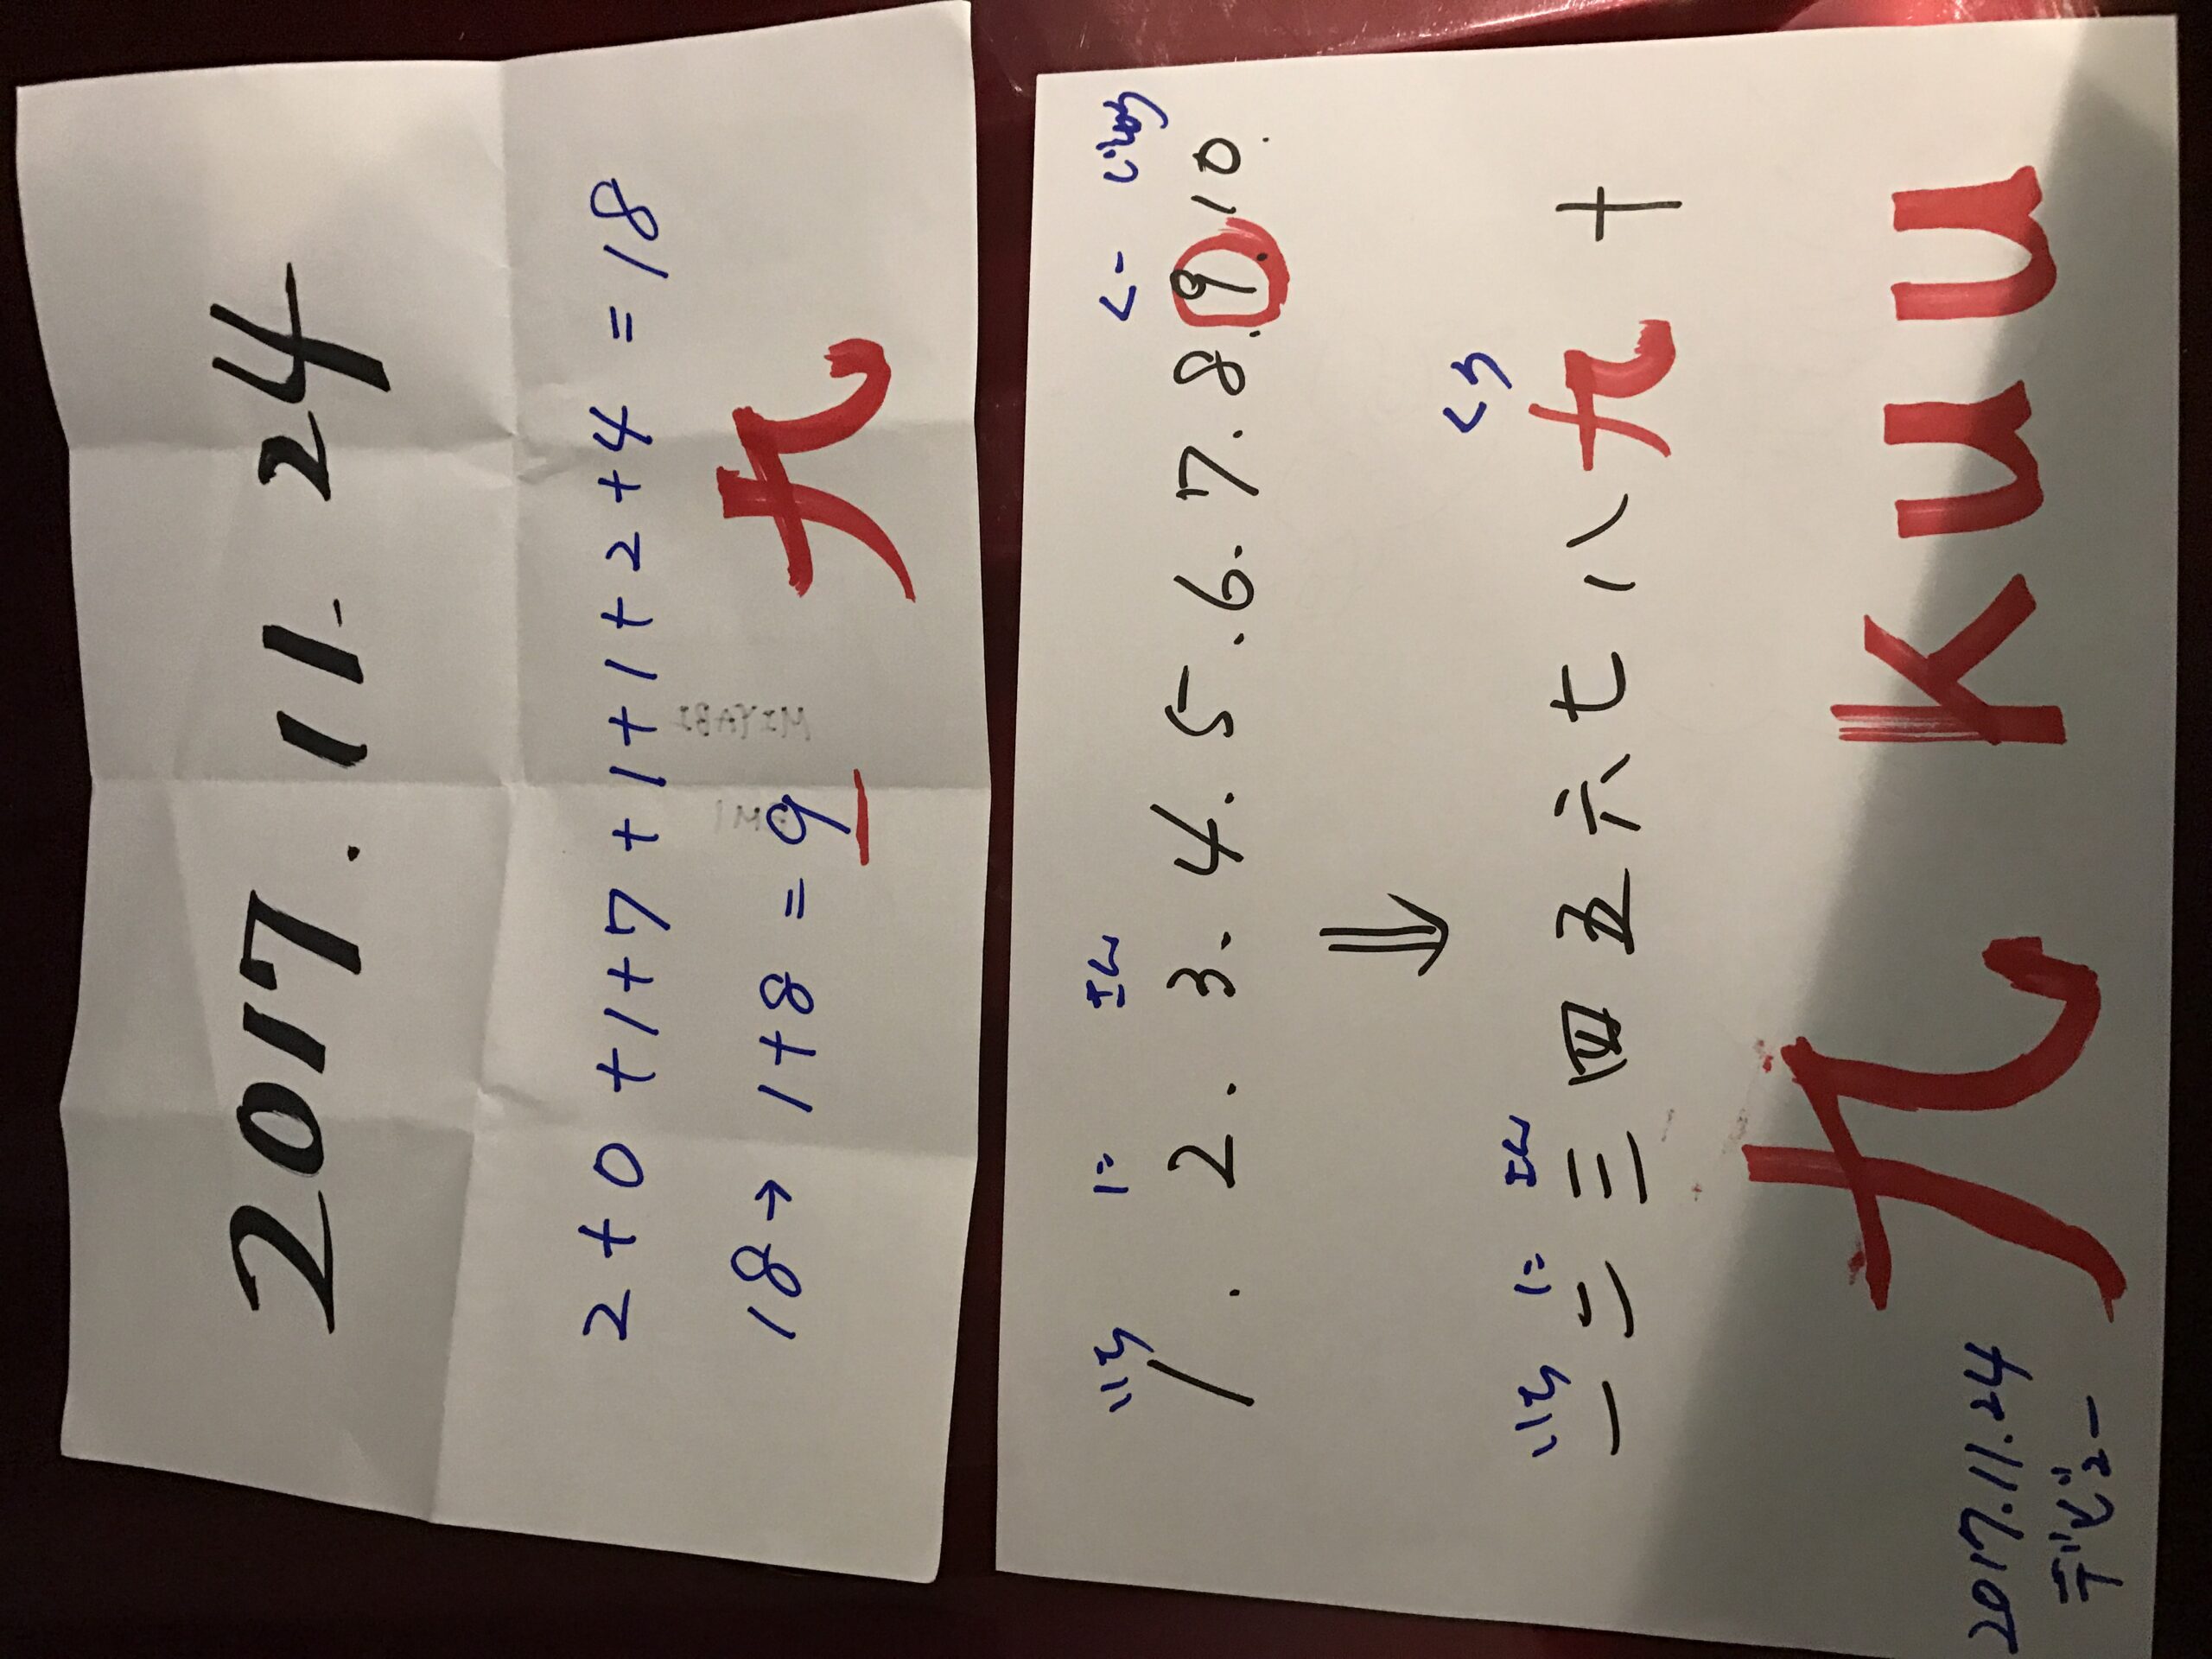 2017.11.24
2+0+1+7+1+1+2+4=18
18→1+8=9
九
いち に さん くー じゅう
1.2.3.4.5.6.7.8.9.10.
⇓
いち に さん くう
一二三四五六七八九十
九 kuu
2017.11.24
デビュー